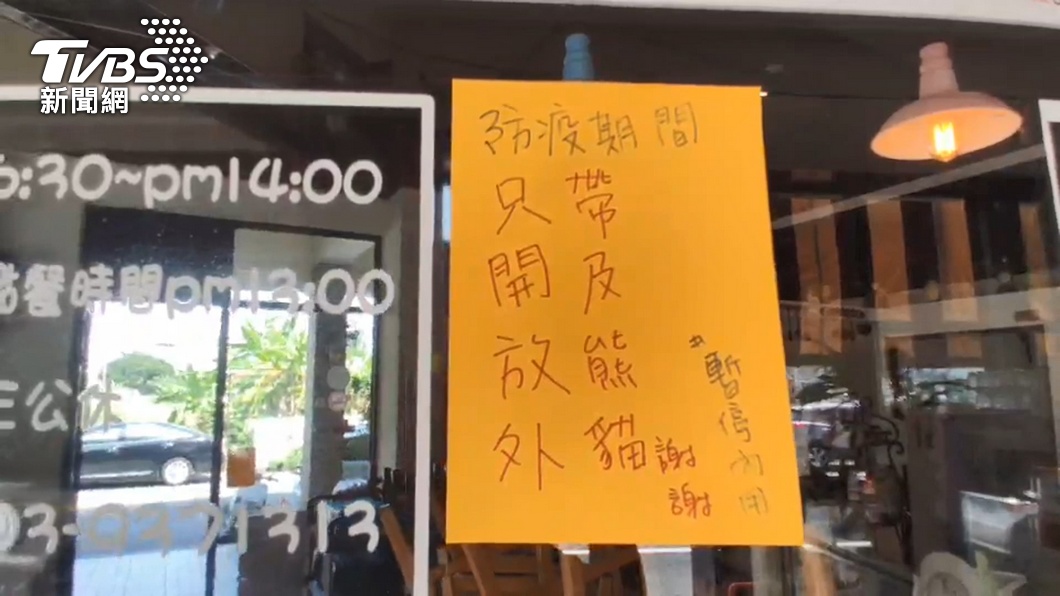 TVBS
新聞網
6:30~pm14:00
點餐時間pm13:00
公休
防疫期間
只開放外
帶及熊貓
謝謝
*暫停內用